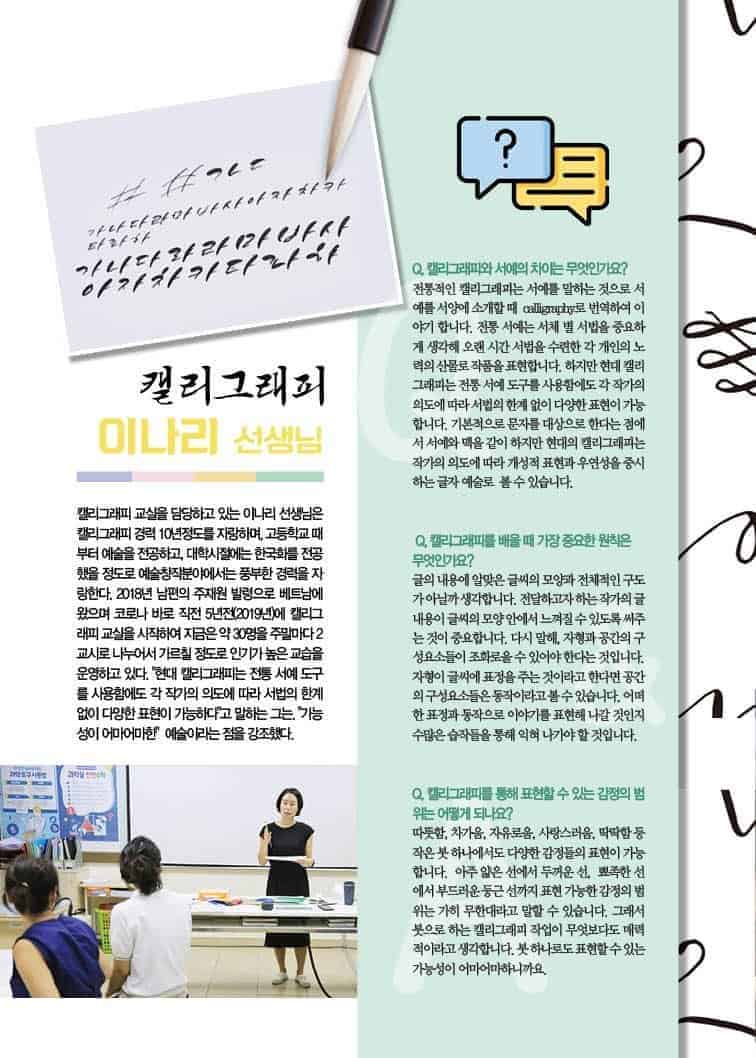 # # 가 ㄷ
가 나 다 라 마 바 사 아 자 차 카
타 파 하
가 나 다 라 마 바 사
아 자 차 카 타 파 하
캘리그래피
이나리 선생님
캘리그래피 교실을 담당하고 있는 이나리 선생님은
캘리그래피 경력 10년정도를 자랑하며, 고등학교 때
부터 예술을 전공하고, 대학시절에는 한국화를 전공
했을 정도로 예술창작분야에서는 풍부한 경력을 자
랑한다. 2018년 남편의 주재원 발령으로 베트남에
왔으며 코로나 바로 직전 5년전(2019년)에 캘리그
래피 교실을 시작하여 지금은 약 30명을 주말마다 2
교시로 나누어서 가르칠 정도로 인기가 높은 교습을
운영하고 있다. "현대 캘리그래피는 전통 서예 도구
를 사용함에도 각 작가의 의도에 따라 서법의 한계
없이 다양한 표현이 가능하다"고 말하는 그는, "가능
성이 어마어마한" 예술이라는 점을 강조했다.
?
Q. 캘리그래피와 서예의 차이는 무엇인가요?
전통적인 캘리그래피는 서예를 말하는 것으로 서
예를 서양에 소개할 때 calligraphy로 번역하여 이
야기 합니다. 전통 서예는 서체 별 서법을 중요하
게 생각해 오랜 시간 서법을 수련한 각 개인의 노
력의 산물로 작품을 표현합니다. 하지만 현대 캘리
그래피는 전통 서예 도구를 사용함에도 각 작가의
의도에 따라 서법의 한계 없이 다양한 표현이 가능
합니다. 기본적으로 문자를 대상으로 한다는 점에
서 서예와 맥을 같이 하지만 현대의 캘리그래피는
작가의 의도에 따라 개성적 표현과 우연성을 중시
하는 글자 예술로 볼 수 있습니다.
Q. 캘리그래피를 배울 때 가장 중요한 원칙은
무엇인가요?
글의 내용에 알맞은 글씨의 모양과 전체적인 구도
가 아닐까 생각합니다. 전달하고자 하는 작가의 글
내용이 글씨의 모양 안에서 느껴질 수 있도록 써주
는 것이 중요합니다. 다시 말해, 자형과 공간의 구
성요소들이 조화로울 수 있어야 한다는 것입니다.
자형이 글씨에 표정을 주는 것이라고 한다면 공간
의 구성요소들은 동작이라고 볼 수 있습니다. 어떠
한 표정과 동작으로 이야기를 표현해 나갈 것인지
수많은 습작들을 통해 익혀 나가야 할 것입니다.
Q. 캘리그래피를 통해 표현할 수 있는 감정의 범
위는 어떻게 되나요?
따뜻함, 차가움, 자유로움, 사랑스러움, 딱딱함 등
작은 붓 하나에서도 다양한 감정들의 표현이 가능
합니다. 아주 얇은 선에서 두꺼운 선, 뾰족한 선
에서 부드러운 둥근 선까지 표현 가능한 감정의 범
위는 가히 무한대라고 말할 수 있습니다. 그래서
붓으로 하는 캘리그래피 작업이 무엇보다도 매력
적이라고 생각합니다. 붓 하나로도 표현할 수 있는
가능성이 어마어마하니까요.